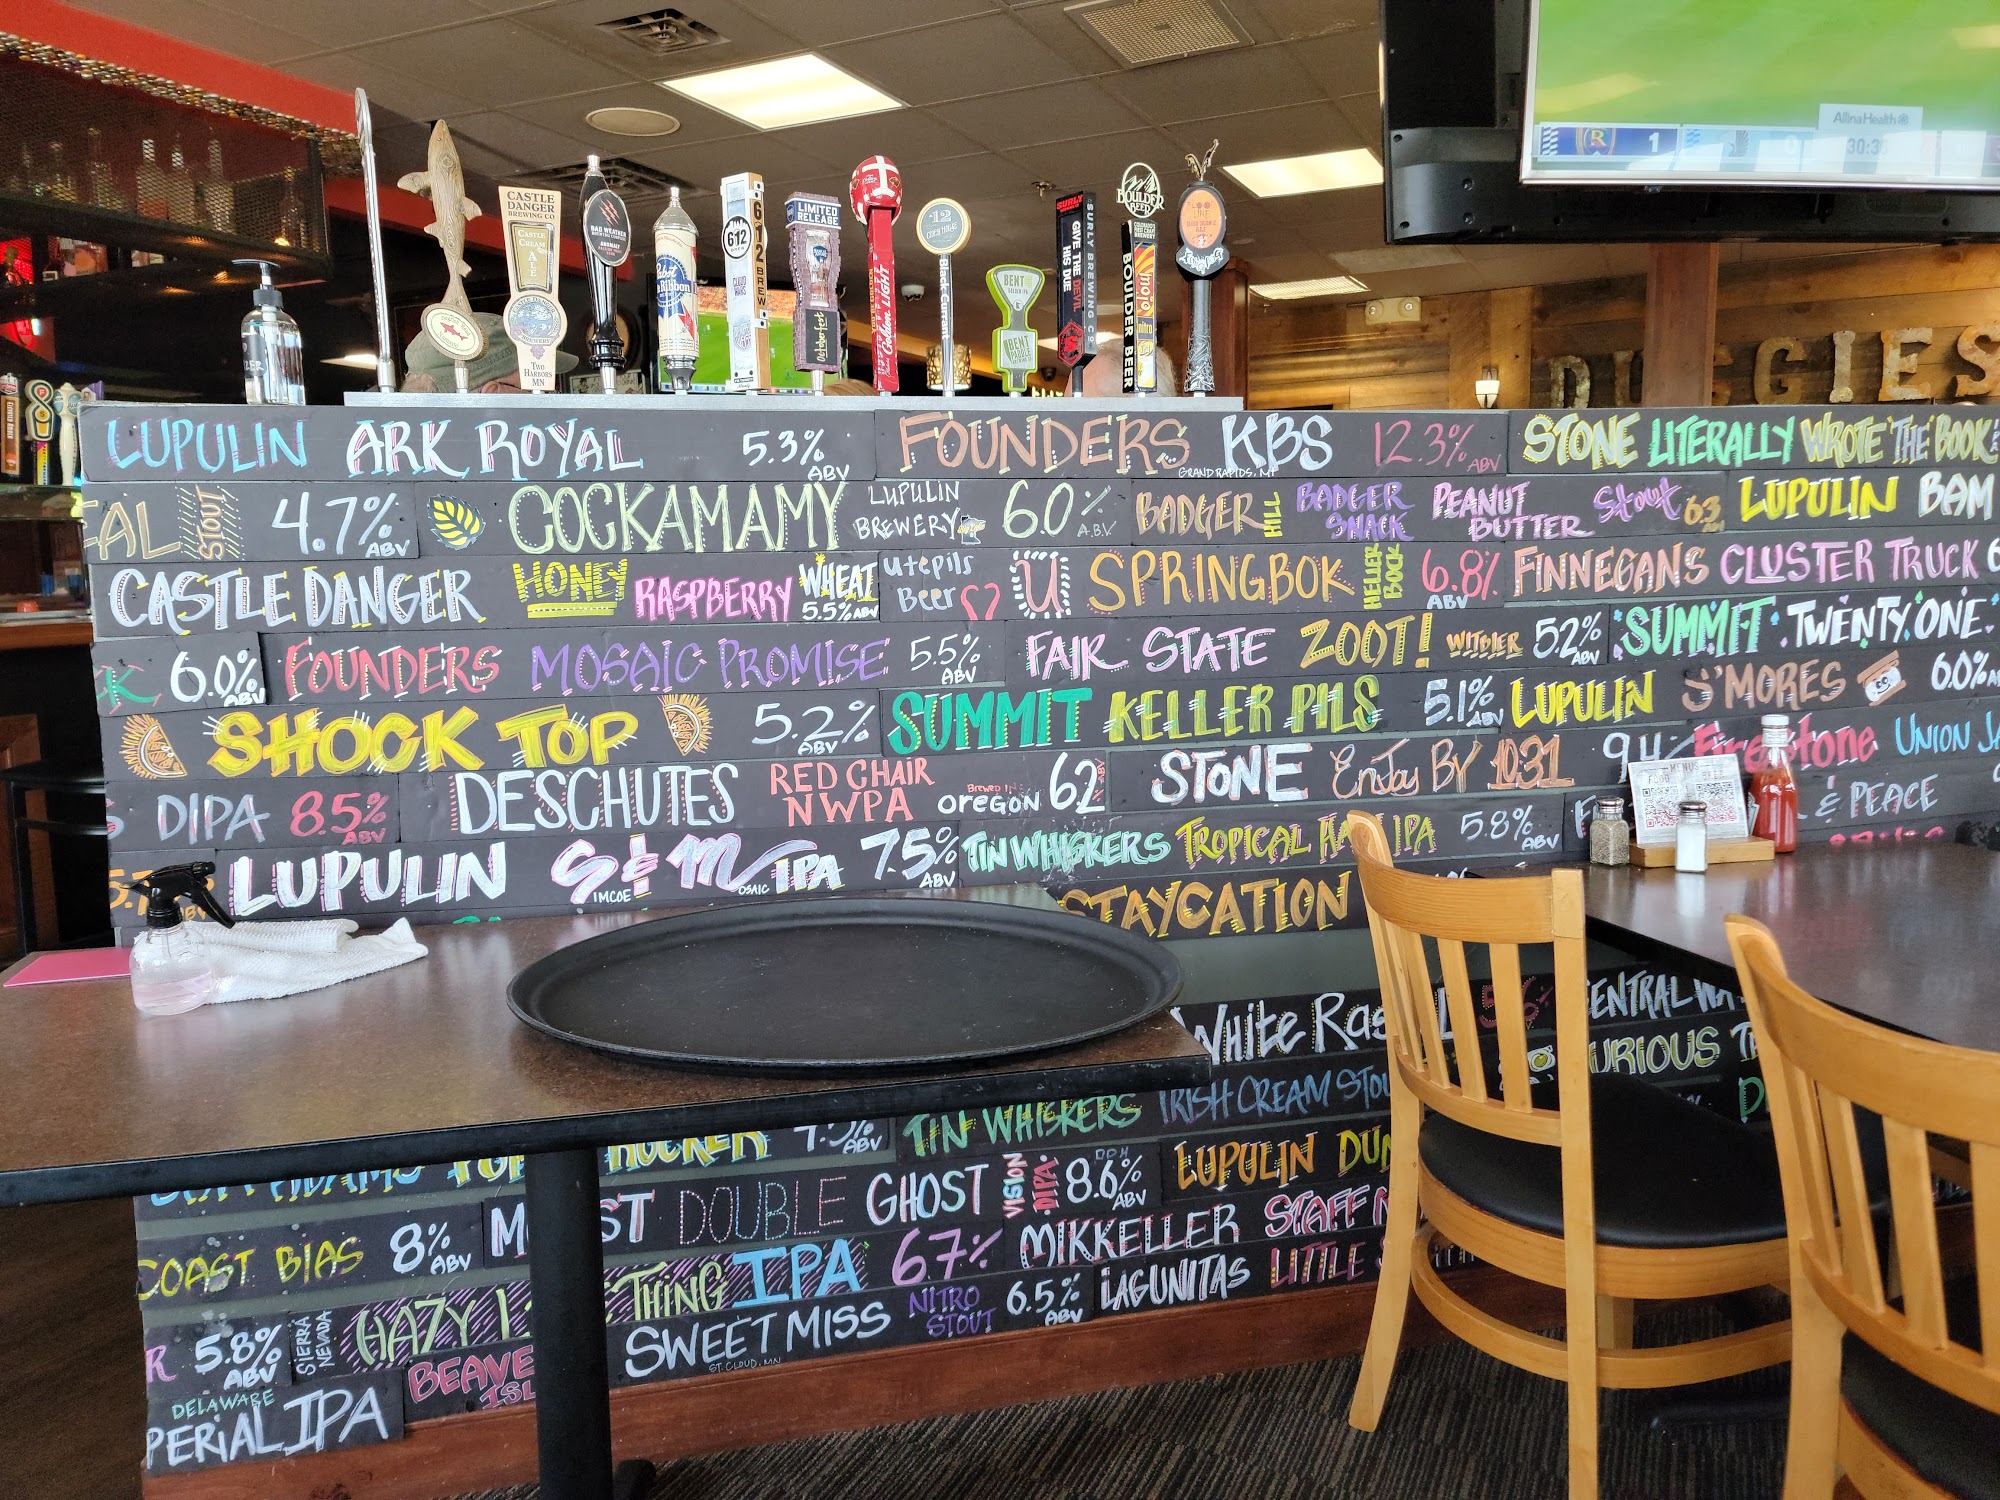 Allina Health
1 0 30:3
DUGGIES
CASTLE DANGER BREWING CO
CASTLE CREAM ALE
TWO HARBORS MN
BAD WEATHER
Pabst Blue Ribbon
612
612 BREW
LIMITED RELEASE
Octoberfest
Golden LIGHT
-12
Black Cinnamon
BENT
BENT PADDLE
SURLY
GIVE THE DEVIL HIS DUE
SURLY BREWING CO.
BOULDER BEER
BOULDER BEER
mojo
nitro
LUPULIN ARK ROYAL 5.3% ABV FOUNDERS KBS GRAND RAPIDS, MI 12.3% ABV STONE LITERALLY WROTE THE BOOK
EAL STOUT 4.7% ABV COCKAMAMY LUPULIN BREWERY 6.0% A.B.V BADGER HILL BADGER SNACK PEANUT BUTTER STOUT 6.3 LUPULIN BAM
CASTLE DANGER HONEY RASPBERRY WHEAT 5.5% ABV utepils Beer U SPRINGBOK HELLER BOCK 6.8% ABV FINNEGANS CLUSTER TRUCK 6
K 6.0% ABV FOUNDERS MOSAIC PROMISE 5.5% ABV FAIR STATE ZOOT! WITBIER 5.2% ABV SUMMIT TWENTY ONE
SHOCK TOP 5.2% ABV SUMMIT KELLER PILS 5.1% ABV LUPULIN S'MORES 6.0% A
S DIPA 8.5% ABV DESCHUTES RED CHAIR NWPA BREWED IN OREGON 6.2 ABV STONE ENJOY BY 10.31 9.4 Firestone UNION JA
LUPULIN S & M IPA IMCOE OSAIC 7.5% ABV TIN WHISKERS TROPICAL HA IPA 5.8% ABV & PEACE
MENUS
FOOD BEER
STAYCATION
WHITE RAS 5.6% CENTRAL WA
IRISH CREAM STOU URIOUS TR
ADAMS POR HUCKER 7.5% ABV TIN WHISKERS
M ST DOUBLE GHOST VISION DIPA 8.6% ABV LUPULIN DUN
COAST BIAS 8% ABV MIKKELLER STAFF M
HAZY L THING IPA 6.7% LAGUNITAS LITTLE S
R 5.8% ABV SIERRA NEVADA SWEET MISS ST. CLOUD, MN NITRO STOUT 6.5% ABV
DELAWARE BEAVE ISL
PERIAL IPA